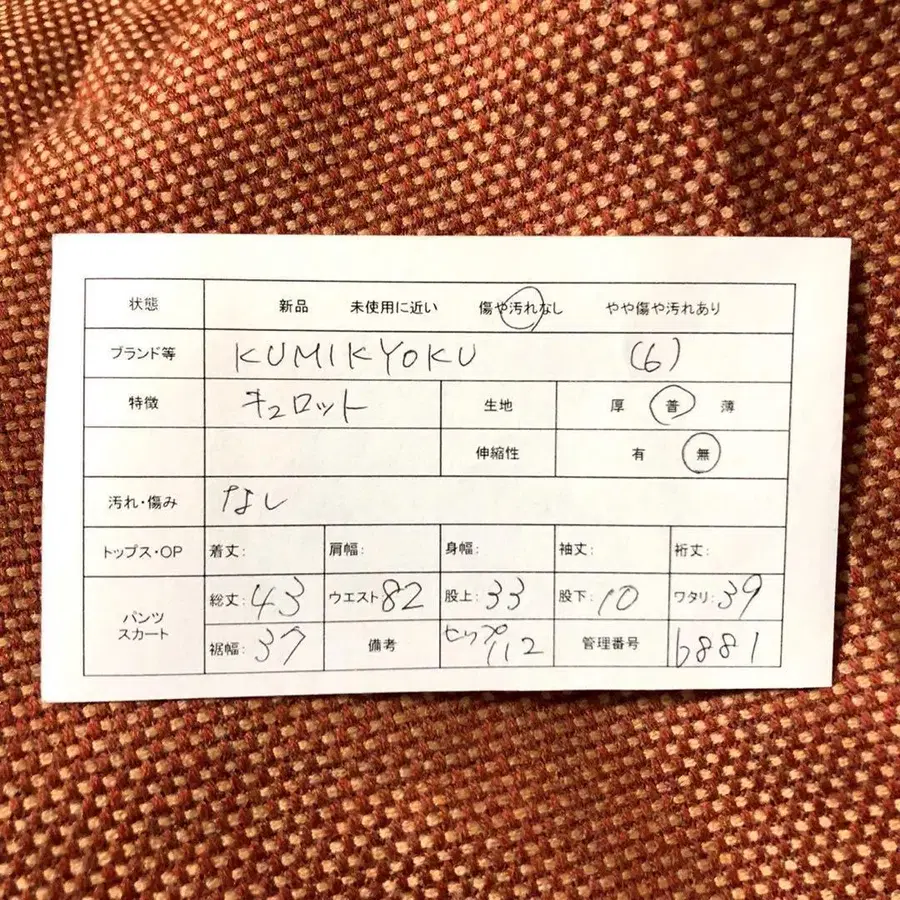 状態 新品 未使用に近い 傷や汚れなし やや傷や汚れあり
ブランド等 KUMIKYOKU (6)
特徴 キュロット 生地 厚 普 薄
伸縮性 有 無
汚れ・傷み なし
トップス・OP 着丈: 肩幅: 身幅: 袖丈: 裄丈:
パンツ スカート 総丈:43 ウエスト82 股上:33 股下:10 ワタリ:39
裾幅:37 備考 ヒップ112 管理番号 6881